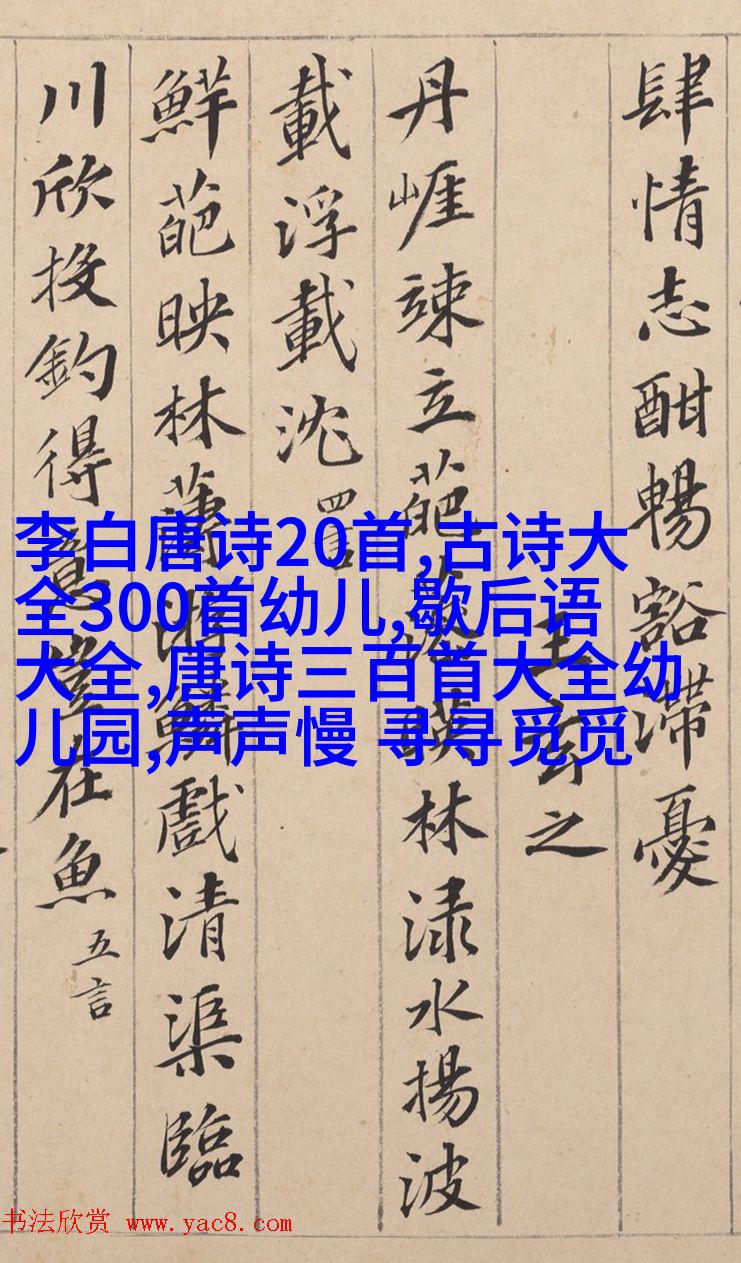 肆情志酣暢豁滯憂
王玄之
丹崖竦立葩藻暎林淥水揚波
載浮載沈 四言
鮮葩映林薄游鱗戲清渠臨
川欣投釣得意豈在魚 五言
李白唐诗20首,古诗大
全300首幼儿,歇后语
大全,唐诗三百首大全幼
儿园,声声慢 寻寻觅觅
书法欣赏 www.yac8.com